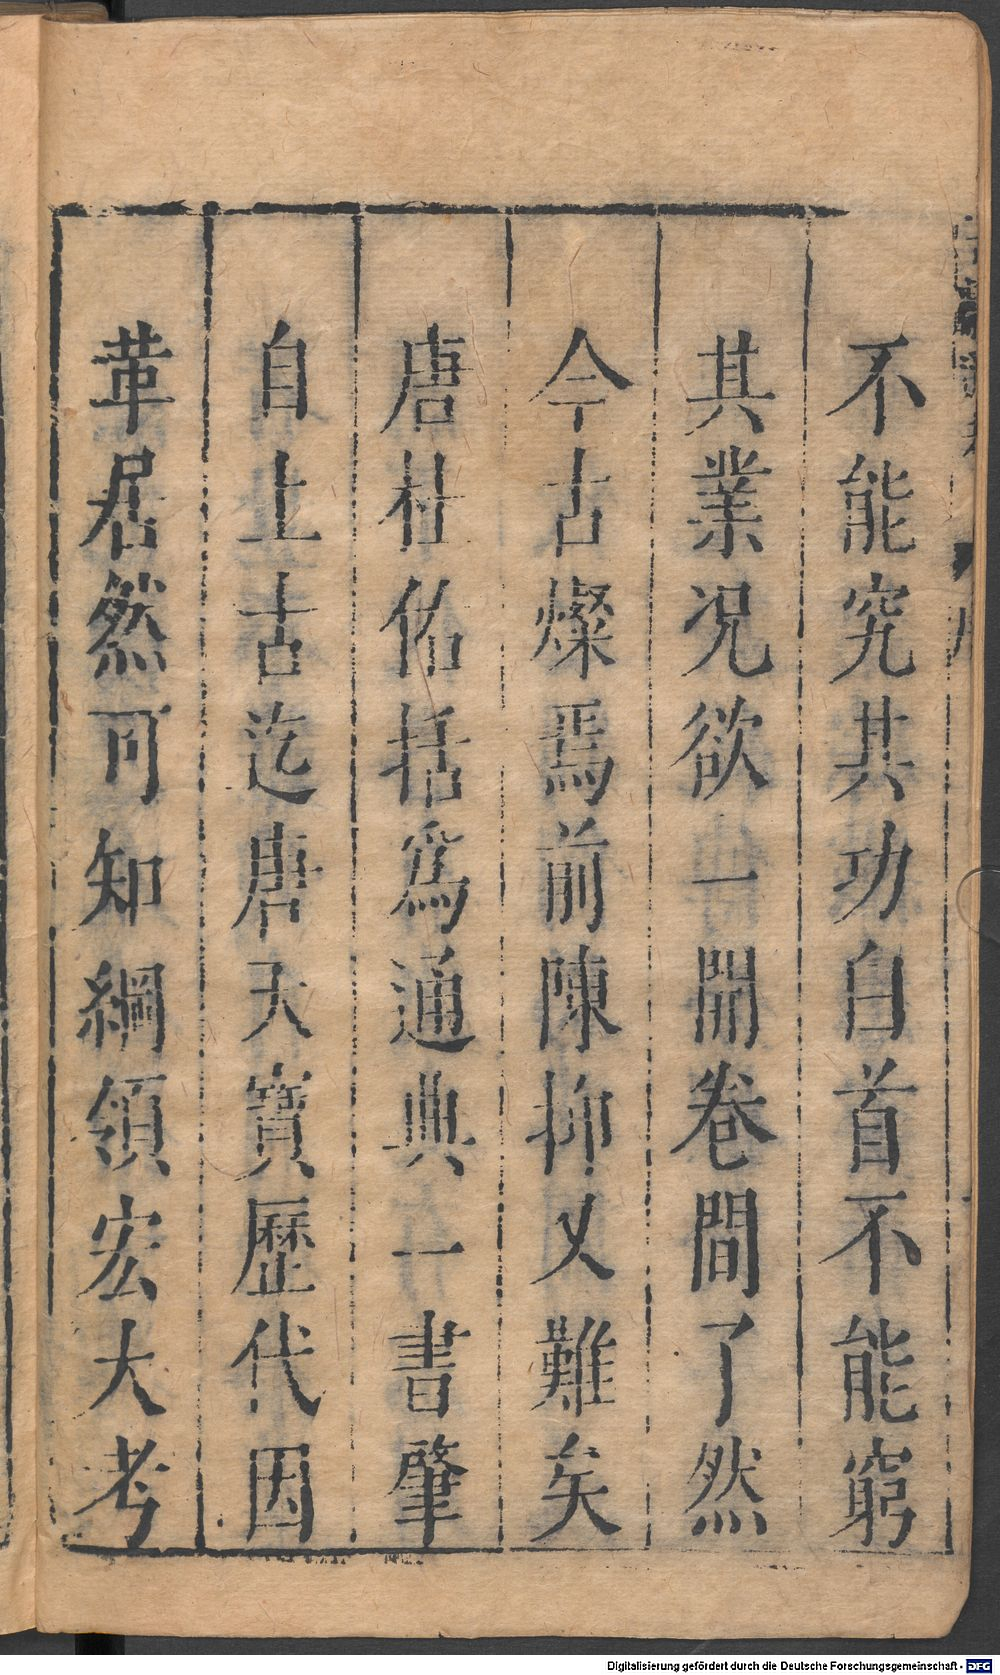 不能究其功白首不能窮
其業况欲一開卷間了然
今古燦焉前陳抑又難矣
唐杜佑括爲通典一書肇
自上古迄唐天寳歷代因
革居然可知綱領宏大考
Digitalisierung gefördert durch die Deutsche Forschungsgemeinschaft - DFG